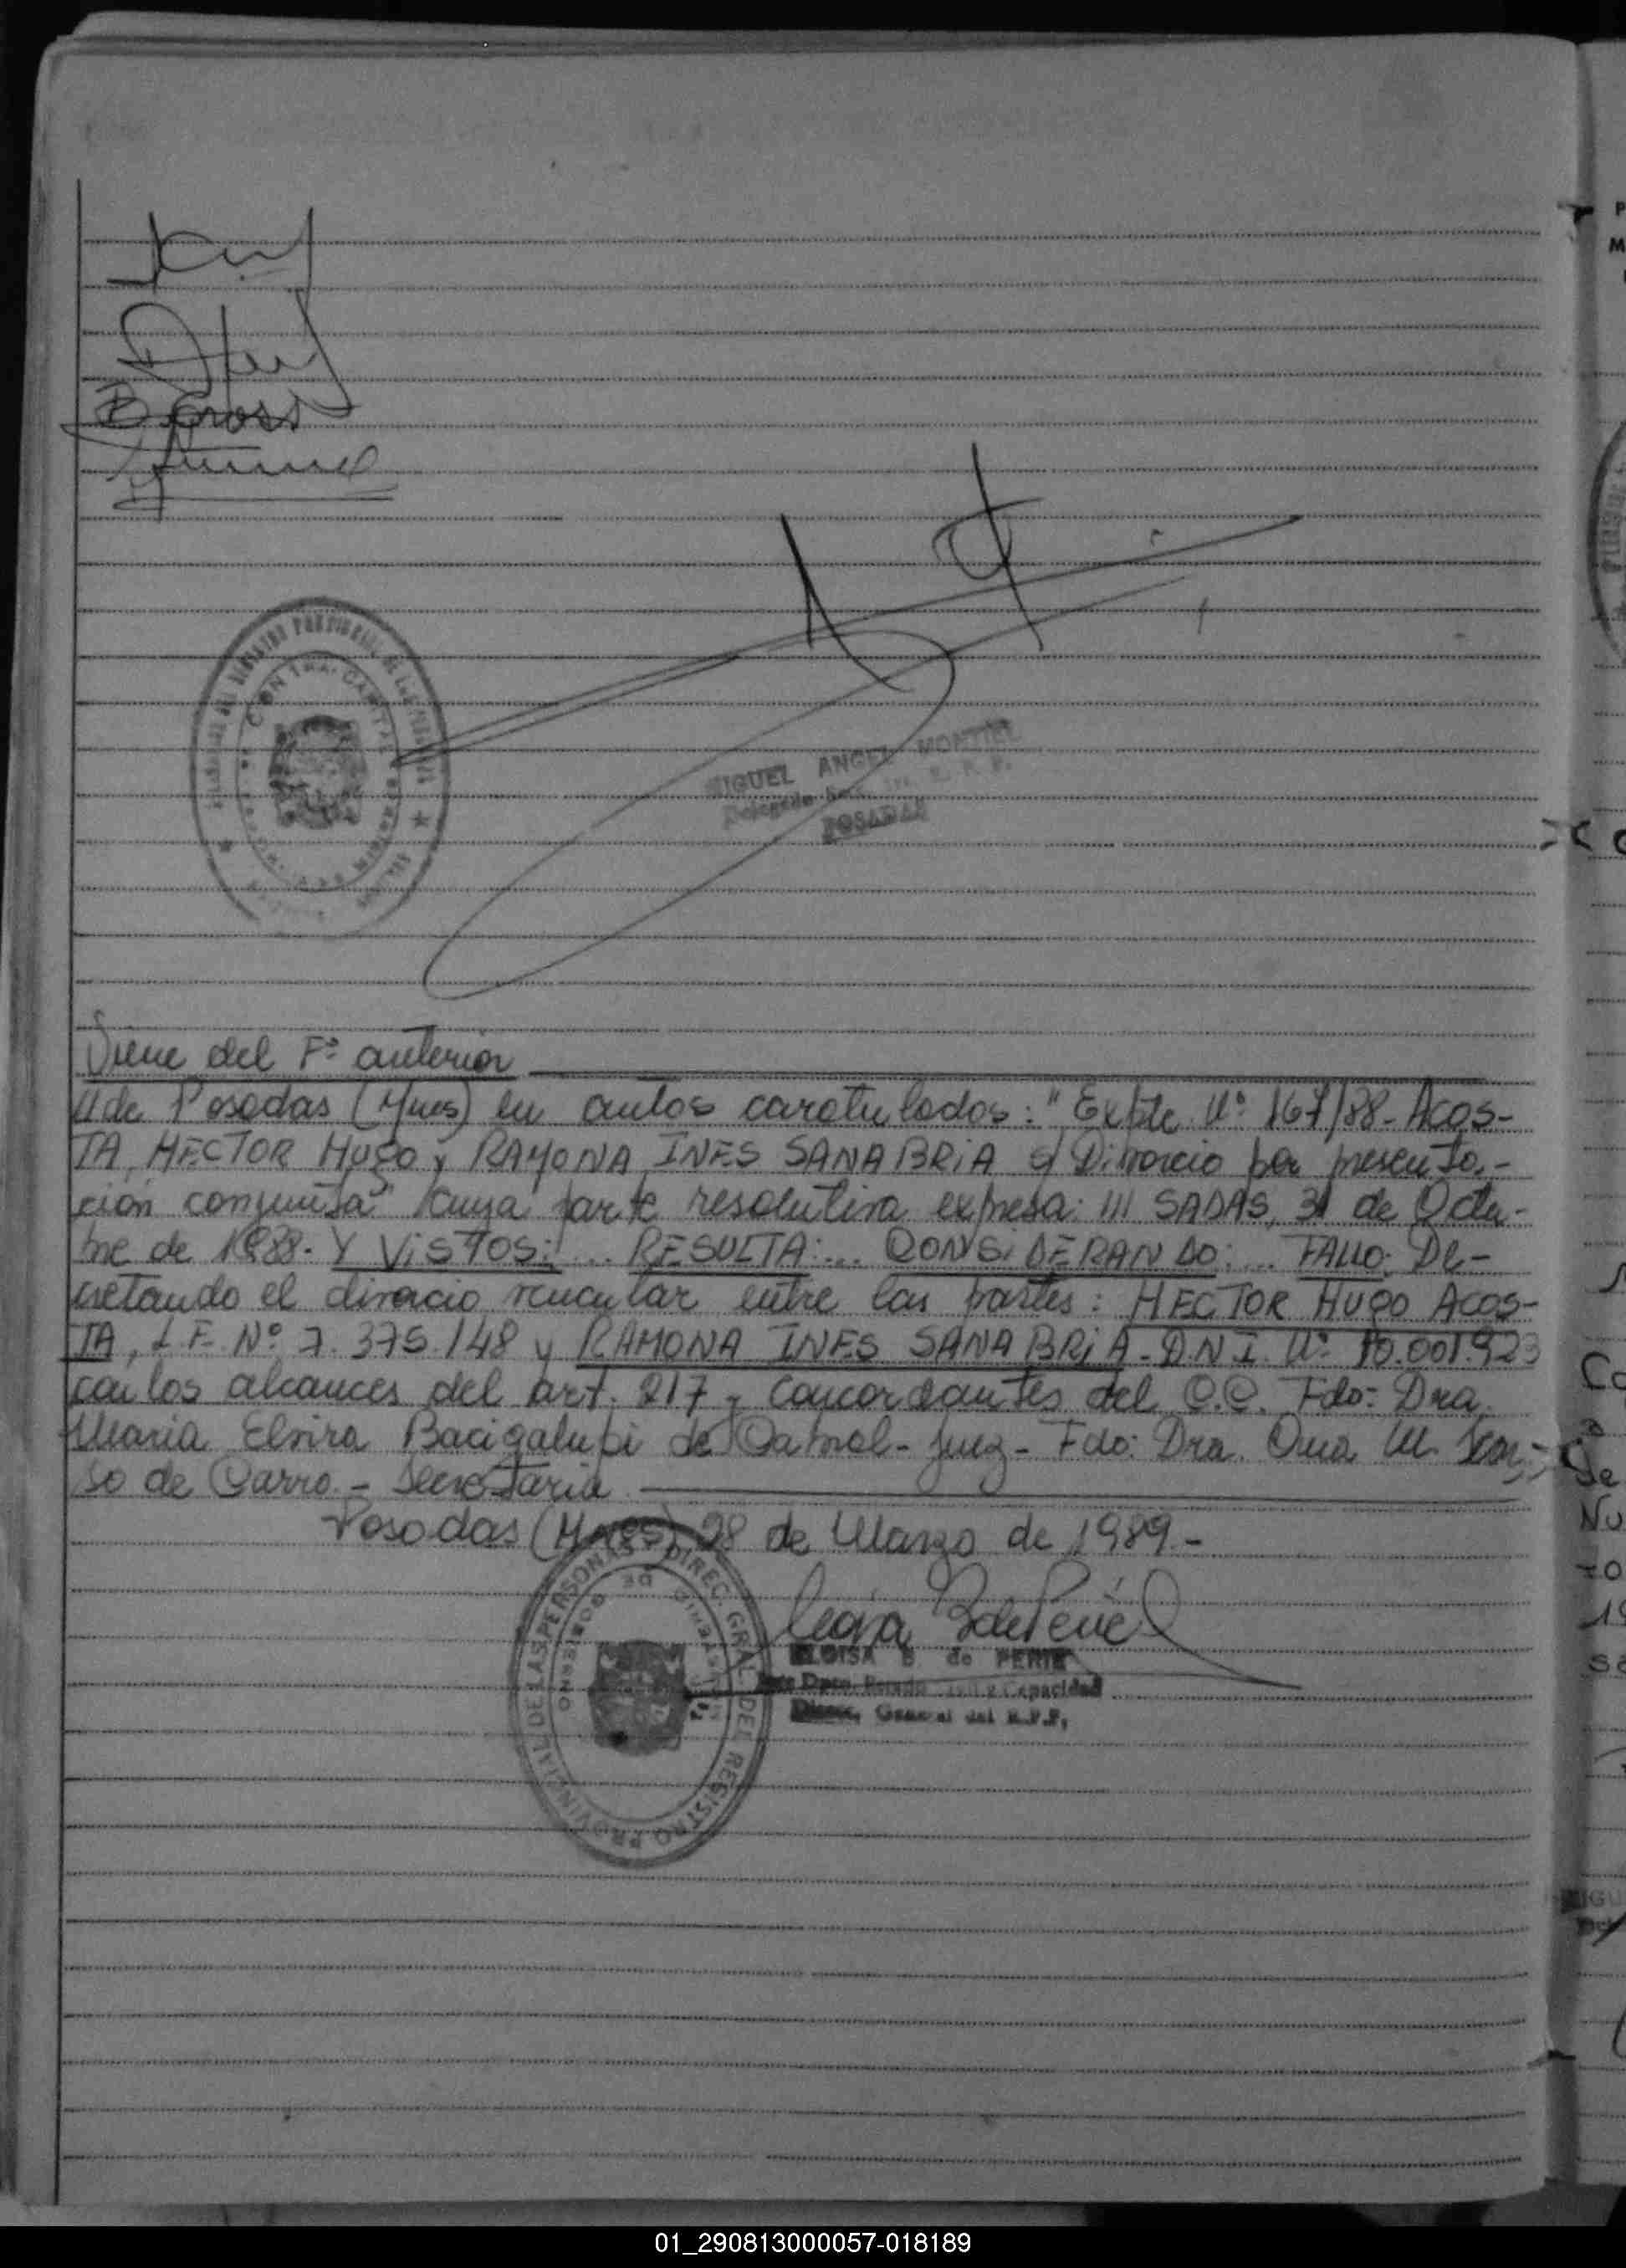 B Gross
CONTRA CAPITAL
MIGUEL ANGEL MONTIEL
POSADAS
Viene del Fº anterior
// de Posadas (Mnes) en autos caratulados: "Expte. Nº 167/88- ACOS-
TA, HECTOR HUGO y RAMONA INES SANABRIA s/ Divorcio por presenta-
ción conjunta" cuya parte resolutiva expresa: /// SADAS, 31 de Octu-
bre de 1988. Y VISTOS:... RESULTA:... CONSIDERANDO:... FALLO: De-
cretando el divorcio vincular entre las partes: HECTOR HUGO ACOS-
TA, L.E. Nº 7.375.148 y RAMONA INES SANABRIA - D.N.I. Nº 10.001.923
con los alcances del art. 217 y concordantes del C.C. Fdo: Dra.
Maria Elvira Bacigalupi de Cabral - Juez - Fdo: Dra. Ana M.
so de Carro. - Secretaria
Posadas (Mnes) 28 de Marzo de 1989.-
DIREC. GRAL. DEL REGISTRO PROVINCIAL DE LAS PERSONAS
MINISTERIO DE GOBIERNO
ELOISA B. de PERIE
Dpto. Estado Civil y Capacidad
Direc. General del R.P.P.
01_290813000057-018189